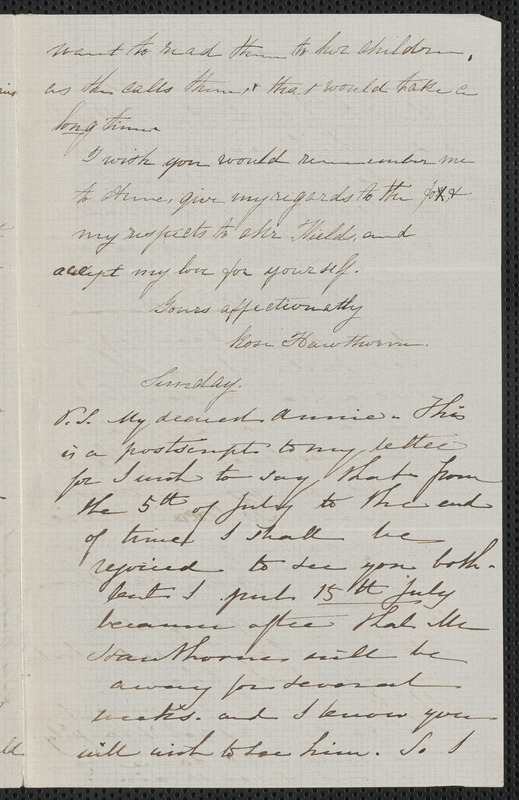 want to read them to her children,
as she calls them, & that would take a
long time.
I wish you would remember me
to Anne, give my regards to the fox &
my respects to Mr Fields, and
accept my love for yourself.
Yours affectionately
Rose Hawthorne.
Sunday.
P.S. My dearest Annie – This
is a postscript to my letter
for I wish to say that from
the 5th of July to the end
of time, I shall be
rejoiced to see you both –
but I put 15th July
because after that Mr
Hawthorne will be
away for several
weeks. and I know you
will wish to see him. So I